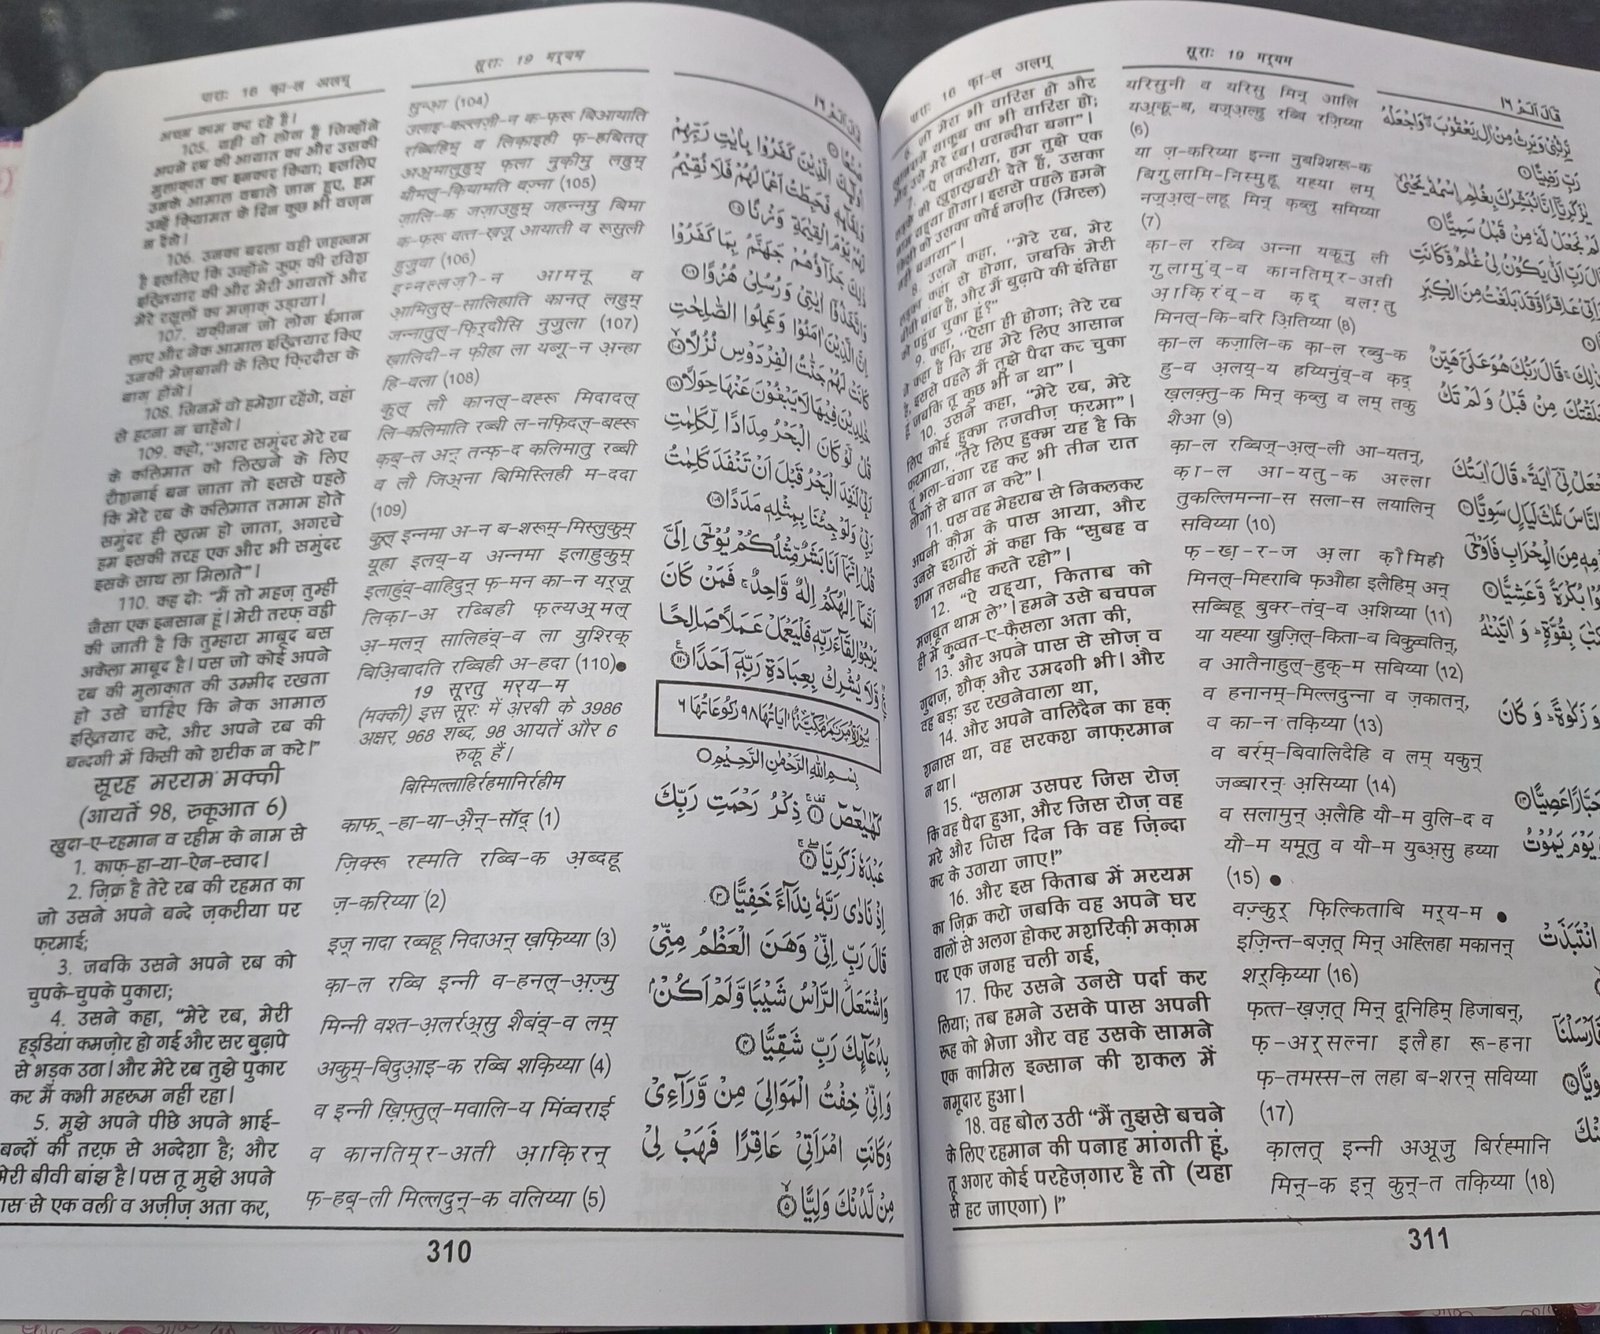 पारः 16 का़-ल अलम्
सूराः 19 मर्‌यम
قَالَ اَلَمْ ١٦
अच्छा काम कर रहे हैं।
105. यही वो लोग हैं जिन्होंने
अपने रब की आयात का और उसकी
मुलाक़ात का इनकार किया; इसलिए
उनके आमाल वबाले जान हुए, हम
उन्हें कियामत के दिन कुछ भी वज़न
न देंगे।
106. उनका बदला वही जहन्नम
है इसलिए कि उन्होंने कुफ़्र की रविश
इख़्तियार की और मेरी आयतों और
मेरे रसूलों का मज़ाक़ उड़ाया।
107. यक़ीनन जो लोग ईमान
लाए और नेक आमाल इख़्तियार किए
उनकी मेज़बानी के लिए फ़िरदौस के
बाग़ होंगे।
108. जिनमें वो हमेशा रहेंगे, वहां
से हटना न चाहेंगे।
109. कहो, "अगर समुंदर मेरे रब
के कलिमात को लिखने के लिए
रौशनाई बन जाता तो इससे पहले
कि मेरे रब के कलिमात तमाम होते
समुंदर ही ख़त्म हो जाता, अगरचे
हम इसकी तरह एक और भी समुंदर
इसके साथ ला मिलाते"।
110. कह दो: "मैं तो महज़ तुम्हीं
जैसा एक इनसान हूं। मेरी तरफ़ वही
की जाती है कि तुम्हारा माबूद बस
अकेला माबूद है। पस जो कोई अपने
रब की मुलाक़ात की उम्मीद रखता
हो उसे चाहिए कि नेक आमाल
इख़्तियार करे, और अपने रब की
बन्दगी में किसी को शरीक न करे।"
सूरह मरयम मक्की
(आयतें 98, रुकूआत 6)
खुदा-ए-रहमान व रहीम के नाम से
1. काफ़-हा-या-ऐन-स्वाद।
2. ज़िक्र है तेरे रब की रहमत का
जो उसने अपने बन्दे ज़करीया पर
फ़रमाई;
3. जबकि उसने अपने रब को
चुपके-चुपके पुकारा;
4. उसने कहा, "मेरे रब, मेरी
हड्डियां कमज़ोर हो गई और सर बुढ़ापे
से भड़क उठा। और मेरे रब तुझे पुकार
कर मैं कभी महरूम नहीं रहा।
5. मुझे अपने पीछे अपने भाई-
बन्दों की तरफ़ से अन्देशा है; और
मेरी बीवी बांझ है। पस तू मुझे अपने
पास से एक वली व अज़ीज़ अता कर,
सुन्आ (104)
उलाइ-कल्लज़ी-न क-फ़रू बिआयाति
रब्बिहिम् व लिका़इही फ़-हबितत्
अअ़्मालुहुम् फ़ला नुक़ीमु लहुम्
यौमल्-कि़यामति वज़्ना (105)
ज़ालि-क जज़ाउहुम् जहन्नमु बिमा
क-फ़रू वत्त-ख़जू आयाती व रूसुली
हुजुवा (106)
इन्नल्लज़ी-न आमनू व
अ़मिलुस्-सालिहाति कानत् लहुम्
जन्नातुल्-फ़िर्‌दौसि नुज़ुला (107)
ख़ालिदी-न फ़ीहा ला यब्ग़ू-न अन्हा
हि-वला (108)
कुल् लौ कानल्-बह्‌रू मिदादल्
लि-कलिमाति रब्बी ल-नफ़िदल्-बह्‌रू
क़ब्-ल अन् तन्फ़-द कलिमातु रब्बी
व लौ जिअ्ना बिमिस्लिही म-ददा
(109)
कुल् इन्नमा अ-न ब-शरूम्-मिस्लुकुम्
यूहा इलय्-य अन्नमा इलाहुकुम्
इलाहुंव्-वाहिदुन् फ़-मन का-न यर्‌जू
लिक़ा-अ रब्बिही फ़ल्यअ़्मल्
अ़-मलन् सालिहंव्-व ला युश्रिक्
बिअि़बादति रब्बिही अ-हदा (110)●
19 सूरतु मर्‌य-म
(मक्की) इस सूरः में अ़रबी के 3986
अक्षर, 968 शब्द, 98 आयतें और 6
रुकू हैं।
बिस्मिल्लाहिर्रहमानिर्रहीम
काफ़्-हा-या-अै़न्-सॉद् (1)
ज़िक्रू रह्मति रब्बि-क अ़ब्दहू
ज़-करिय्या (2)
इज़् नादा रब्बहू निदाअन् ख़फ़िय्या (3)
का़-ल रब्बि इन्नी व-हनल्-अ़ज़्मु
मिन्नी वश्त-अ़लर्रअ्सु शैबंव्-व लम्
अकुम्-बिदुआ़इ-क रब्बि शक़िय्या (4)
व इन्नी ख़िफ़्तुल्-मवालि-य मिंव्वराई
व कानतिम्‌र-अती आ़कि़रन्
फ़-हब्-ली मिल्लदुन्-क वलिय्या (5)
صُنْعًا
اُولٰٓئِكَ الَّذِيْنَ كَفَرُوْا بِاٰيٰتِ رَبِّهِمْ
وَلِقَآئِهٖ فَحَبِطَتْ اَعْمَالُهُمْ فَلَا نُقِيْمُ
لَهُمْ يَوْمَ الْقِيٰمَةِ وَزْنًا
ذٰلِكَ جَزَآؤُهُمْ جَهَنَّمُ بِمَا كَفَرُوْا
وَاتَّخَذُوْٓا اٰيٰتِيْ وَرُسُلِيْ هُزُوًا
اِنَّ الَّذِيْنَ اٰمَنُوْا وَعَمِلُوا الصّٰلِحٰتِ
كَانَتْ لَهُمْ جَنّٰتُ الْفِرْدَوْسِ نُزُلًا
خٰلِدِيْنَ فِيْهَا لَا يَبْغُوْنَ عَنْهَا حِوَلًا
قُلْ لَّوْ كَانَ الْبَحْرُ مِدَادًا لِّكَلِمٰتِ
رَبِّيْ لَنَفِدَ الْبَحْرُ قَبْلَ اَنْ تَنْفَدَ كَلِمٰتُ
رَبِّيْ وَلَوْ جِئْنَا بِمِثْلِهٖ مَدَدًا
قُلْ اِنَّمَآ اَنَا بَشَرٌ مِّثْلُكُمْ يُوْحٰٓى اِلَيَّ
اَنَّمَآ اِلٰهُكُمْ اِلٰهٌ وَّاحِدٌ فَمَنْ كَانَ
يَرْجُوْا لِقَآءَ رَبِّهٖ فَلْيَعْمَلْ عَمَلًا صَالِحًا
وَّلَا يُشْرِكْ بِعِبَادَةِ رَبِّهٖٓ اَحَدًا
سُوْرَةُ مَرْيَمَ مَكِّيَّةٌ اٰيَاتُهَا ٩٨ رُكُوْعَاتُهَا ٦
بِسْمِ اللهِ الرَّحْمٰنِ الرَّحِيْمِ
كٓهٰيٰعٓصٓ ۝١ ذِكْرُ رَحْمَتِ رَبِّكَ
عَبْدَهٗ زَكَرِيَّا ۝٢
اِذْ نَادٰى رَبَّهٗ نِدَآءً خَفِيًّا ۝٣
قَالَ رَبِّ اِنِّيْ وَهَنَ الْعَظْمُ مِنِّيْ
وَاشْتَعَلَ الرَّاْسُ شَيْبًا وَّلَمْ اَكُنْ
بِدُعَآئِكَ رَبِّ شَقِيًّا ۝٤
وَاِنِّيْ خِفْتُ الْمَوَالِيَ مِنْ وَّرَآءِيْ
وَكَانَتِ امْرَاَتِيْ عَاقِرًا فَهَبْ لِيْ
مِنْ لَّدُنْكَ وَلِيًّا ۝٥
310
पारः 16 का़-ल अलम्
सूराः 19 मर्‌यम
قَالَ اَلَمْ ١٦
6. जो मेरा भी वारिस हो और
ख़ानवादे याकूब का भी वारिस हो;
और उसे मेरे रब। पसन्दीदा बना"।
7. "ऐ ज़करीया, हम तुझे एक
लड़के की खुशख़बरी देते हैं, उसका
नाम यह्‌या होगा। इससे पहले हमने
किसी को उसका कोई नज़ीर (मिस्ल)
नहीं बनाया"।
8. उसने कहा, "मेरे रब, मेरे
लड़का कहां से होगा, जबकि मेरी
बीवी बांझ है, और मैं बुढ़ापे की इंतिहा
को पहुंच चुका हूं?"
9. कहा, "ऐसा ही होगा; तेरे रब
ने कहा है कि यह मेरे लिए आसान
है, इससे पहले मैं तुझे पैदा कर चुका
हूं जबकि तू कुछ भी न था"।
10. उसने कहा, "मेरे रब, मेरे
लिए कोई हुक्म तजवीज़ फ़रमा"।
फ़रमाया, "तेरे लिए हुक्म यह है कि
तू भला-चंगा रह कर भी तीन रात
लोगों से बात न करे"।
11. पस वह मेहराब से निकलकर
अपनी क़ौम के पास आया, और
उनसे इशारों में कहा कि "सुबह व
शाम तसबीह करते रहो"।
12. "ऐ यह्‌या, किताब को
मज़बूत थाम ले"। हमने उसे बचपन
ही में कुव्वत-ए-फ़ैसला अता की,
13. और अपने पास से सोज़ व
गुदाज़, शौक़ और उमदगी भी। और
वह बड़ा डर रखनेवाला था,
14. और अपने वालिदैन का हक़
शनास था, वह सरकश नाफ़रमान
न था।
15. "सलाम उसपर जिस रोज़
कि वह पैदा हुआ, और जिस रोज़ वह
मरे और जिस दिन कि वह ज़िन्दा
कर के उठाया जाए!"
16. और इस किताब में मरयम
का ज़िक्र करो जबकि वह अपने घर
वालों से अलग होकर मशरिक़ी मक़ाम
पर एक जगह चली गई,
17. फिर उसने उनसे पर्दा कर
लिया; तब हमने उसके पास अपनी
रूह को भेजा और वह उसके सामने
एक कामिल इन्सान की शकल में
नमूदार हुआ।
18. वह बोल उठी "मैं तुझसे बचने
के लिए रहमान की पनाह मांगती हूं,
तू अगर कोई परहेज़गार है तो (यहा
से हट जाएगा)।"
यरिसुनी व यरिसु मिन् आलि
यअ़्कू-ब, वज्अ़ल्हु रब्बि रज़िय्या
(6)
या ज़-करिय्या इन्ना नुबश्शिरू-क
बिगुलामि-निस्मुहू यह्या लम्
नज्अ़ल्-लहू मिन् क़ब्लु समिय्या
(7)
का़-ल रब्बि अन्ना यकूनु ली
गुलामुंव्-व कानतिम्‌र-अती
आ़कि़रंव्-व क़द् बलग़्तु
मिनल्-कि-बरि अि़तिय्या (8)
का़-ल कज़ालि-क का़-ल रब्बु-क
हु-व अ़लय्-य हय्यिनुंव्-व क़द्
ख़लक़्तु-क मिन् क़ब्लु व लम् तकु
शैआ (9)
का़-ल रब्बिज्-अ़ल्-ली आ-यतन्,
का़-ल आ-यतु-क अल्ला
तुकल्लिमन्ना-स सला-स लयालिन्
सविय्या (10)
फ़-ख़-र-ज अ़ला कौ़मिही
मिनल्-मिह्राबि फ़औहा इलैहिम् अन्
सब्बिहू बुक्र-तंव्-व अ़शिय्या (11)
या यह्या खुज़िल्-किता-ब बिकुव्वतिन्,
व आतैनाहुल्-हुक्-म सबिय्या (12)
व हनानम्-मिल्लदुन्ना व ज़कातन्,
व का-न तक़िय्या (13)
व बर्रम्-बिवालिदैहि व लम् यकुन्
जब्बारन् अ़सिय्या (14)
व सलामुन् अ़लैहि यौ-म वुलि-द व
यौ-म यमूतु व यौ-म युब्अ़सु हय्या
(15) ●
वज़्कुर् फ़िल्किताबि मर्‌य-म ●
इज़िन्त-बज़त् मिन् अह्लिहा मकानन्
शर्‌क़िय्या (16)
फ़त्त-ख़ज़त् मिन् दूनिहिम् हिजाबन्,
फ़-अर्‌सल्ना इलैहा रू-हना
फ़-तमस्स-ल लहा ब-शरन् सविय्या
(17)
क़ालत् इन्नी अअ़ूजु बिर्रह्मानि
मिन्-क इन् कुन्-त तक़िय्या (18)
يَّرِثُنِيْ وَيَرِثُ مِنْ اٰلِ يَعْقُوْبَ وَاجْعَلْهُ
رَبِّ رَضِيًّا
يٰزَكَرِيَّآ اِنَّا نُبَشِّرُكَ بِغُلٰمِ اِۨسْمُهٗ يَحْيٰى
لَمْ نَجْعَلْ لَّهٗ مِنْ قَبْلُ سَمِيًّا
قَالَ رَبِّ اَنّٰى يَكُوْنُ لِيْ غُلٰمٌ وَّكَانَتِ
امْرَاَتِيْ عَاقِرًا وَّقَدْ بَلَغْتُ مِنَ الْكِبَرِ
كَذٰلِكَ قَالَ رَبُّكَ هُوَ عَلَيَّ هَيِّنٌ
خَلَقْتُكَ مِنْ قَبْلُ وَلَمْ تَكُ
اجْعَلْ لِّيْٓ اٰيَةً قَالَ اٰيَتُكَ
النَّاسَ ثَلٰثَ لَيَالٍ سَوِيًّا
مِنَ الْمِحْرَابِ فَاَوْحٰٓى
بُكْرَةً وَّعَشِيًّا
بِقُوَّةٍ وَاٰتَيْنٰهُ
وَزَكٰوةً وَكَانَ
جَبَّارًا عَصِيًّا
وَيَوْمَ يَمُوْتُ
انْتَبَذَتْ
فَاَرْسَلْنَآ
311